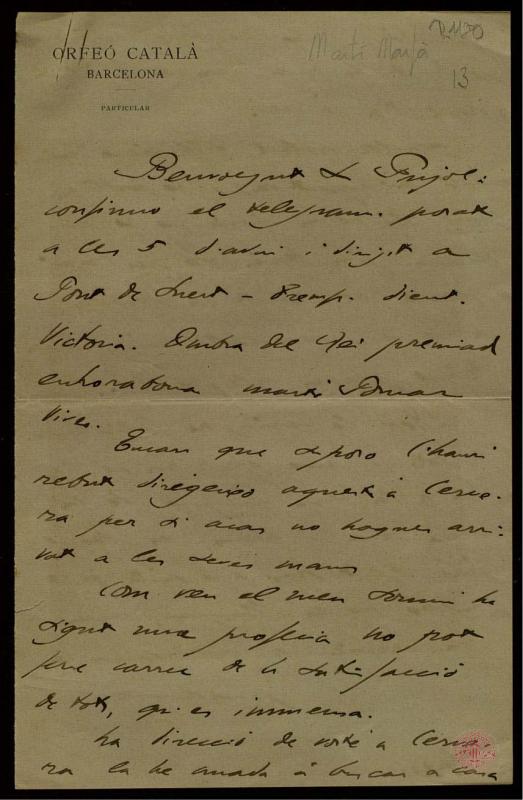 ORFEÓ CATALÀ
BARCELONA
PARTICULAR
R.1180
Martí Maspà
13
Benvolgut Sr Pujol:
confirmo el telegrama posat
a les 5 d'avui i dirigit a
Pont de Suert – Tremp. dient.
Victoria. Ombra del Rei premiad
enhorabona
Vives.
Encara que suposo l'hauri
rebut dirigeixo aquesta a Cerve-
ra per si acas no hagues arri-
vat a les seves mans
Com veu el meu somni ha
sigut una profecia no pot
fere carrec de la satisfacció
de tots, qu'es immensa.
La direcció de vosté a Cerve-
ra la he anada á buscar a casa